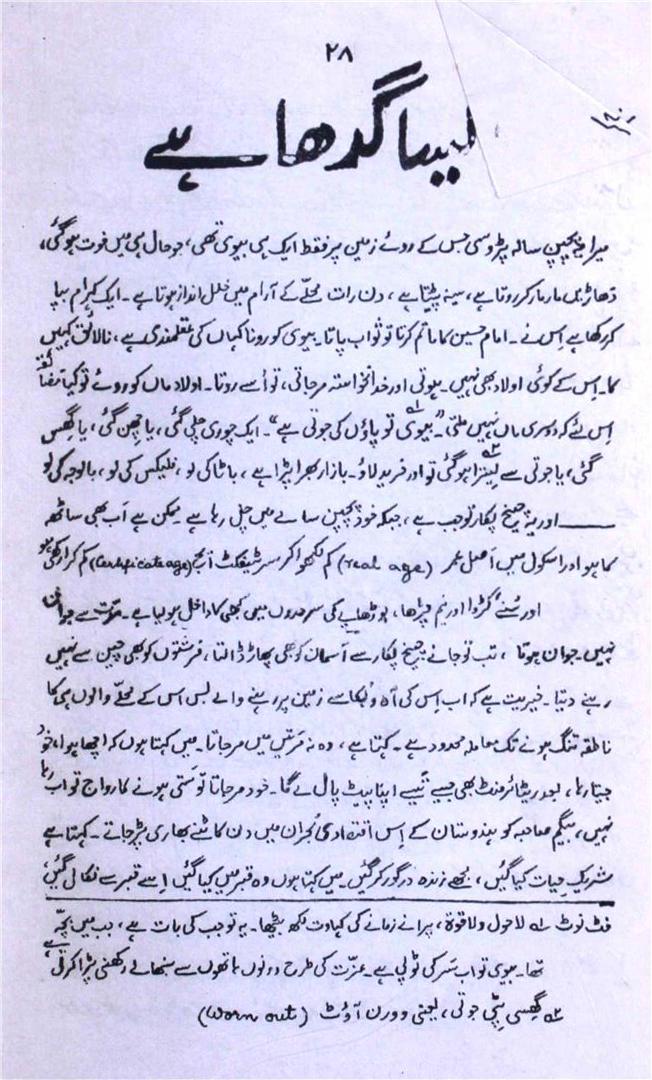 ۲۸
۱۸۰
کیسا گدھا ہے
میرا پچپن سالہ پڑوسی جس کے روئے زمین پر فقط ایک ہی بیوی تھی، جو حال ہی میں فوت ہو گئی،
دھاڑیں مار مار کر روتا ہے، سینہ پیٹتا ہے، دن رات محلّے کے آرام میں خلل انداز ہوتا ہے۔ ایک کہرام بپا
کر رکھا ہے اِس نے۔ امام حسین کا ماتم کرتا تو ثواب پاتا۔ بیوی کو رونا کہاں کی عقلمندی ہے، نالائق کہیں
کا۔ اِس کے کوئی اولاد بھی نہیں۔ ہوتی اور خدانخواستہ مر جاتی، تو اُسے روتا۔ اولاد ماں کو روئے تو کیا مضائقہ
اِس لئے کہ دوسری ماں نہیں ملتی۔ "بیوی تو پاؤں کی جوتی ہے"۱؎۔ ایک چوری چلی گئی، یا چھن گئی، یا گھِس
گئی، یا جوتی سے لِیتڑا۲؎ ہو گئی تو اور خرید لاؤ۔ بازار بھرا پڑا ہے، باٹا کی لو، فلیکس کی لو، بالوجہ کی لو
—— اور یہ چیخ پکار تو جب ہے، جبکہ خود پچپن سالے میں چل رہا ہے۔ ممکن ہے اَب بھی ساٹھ
کا ہو اور اسکول میں اَصل عمر (real age) کم لکھوا کر سرٹیفکٹ ایج (Certificate age) کم کرا رکھی ہو
اور سُنئے کڑوا اور نیم چڑھا، بوڑھاپے کی سرحدوں میں کبھی کا داخل ہو لیا ہے۔ مزّت سے جوان
نہیں۔ جوان ہوتا، تب تو جانے چیخ پکار سے آسمان کو بھی پھاڑ ڈالتا، فرشتوں کو بھی چین سے نہیں
رہنے دیتا۔ خیریت ہے کہ اب اِس کی آہ و بُکا سے زمین پر رہنے والے بس اس کے محلّے والوں ہی کا
ناطقہ تنگ ہونے تک معاملہ محدود ہے۔ کہتا ہے، وہ نہ مرتیں میں مر جاتا۔ میں کہتا ہوں کہ اچھا ہوا، خود
جیتا رہا، بعد ریٹائرمنٹ بھی جیسے تیسے اپنا پیٹ پال لے گا۔ خود مر جاتا تو ستی ہونے کا رواج تو اب رہا
نہیں، بیگم صاحبہ کو ہندوستان کے اِس اقتصادی بُحران میں دن کاٹنے بھاری پڑ جاتے۔ کہتا ہے
شریکِ حیات کیا گئیں، مجھے زندہ درگور کر گئیں۔ میں کہتا ہوں وہ قبر میں کیا گئیں اِسے قبر سے نکال گئیں
فٹ نوٹ ۱؎ لاحول ولا قوۃ، پرانے زمانے کی کہاوت لکھ بیٹھا۔ یہ تو جب کی بات ہے، جب میں بچّہ
تھا۔ بیوی تو اب سَر کی ٹوپی ہے۔ عزّت کی طرح دونوں ہاتھوں سے سنبھالے رکھنی پڑا کرتی ہے
۲؎ گھِسی پِٹی جوتی، یعنی وورن آؤٹ (Worn out)